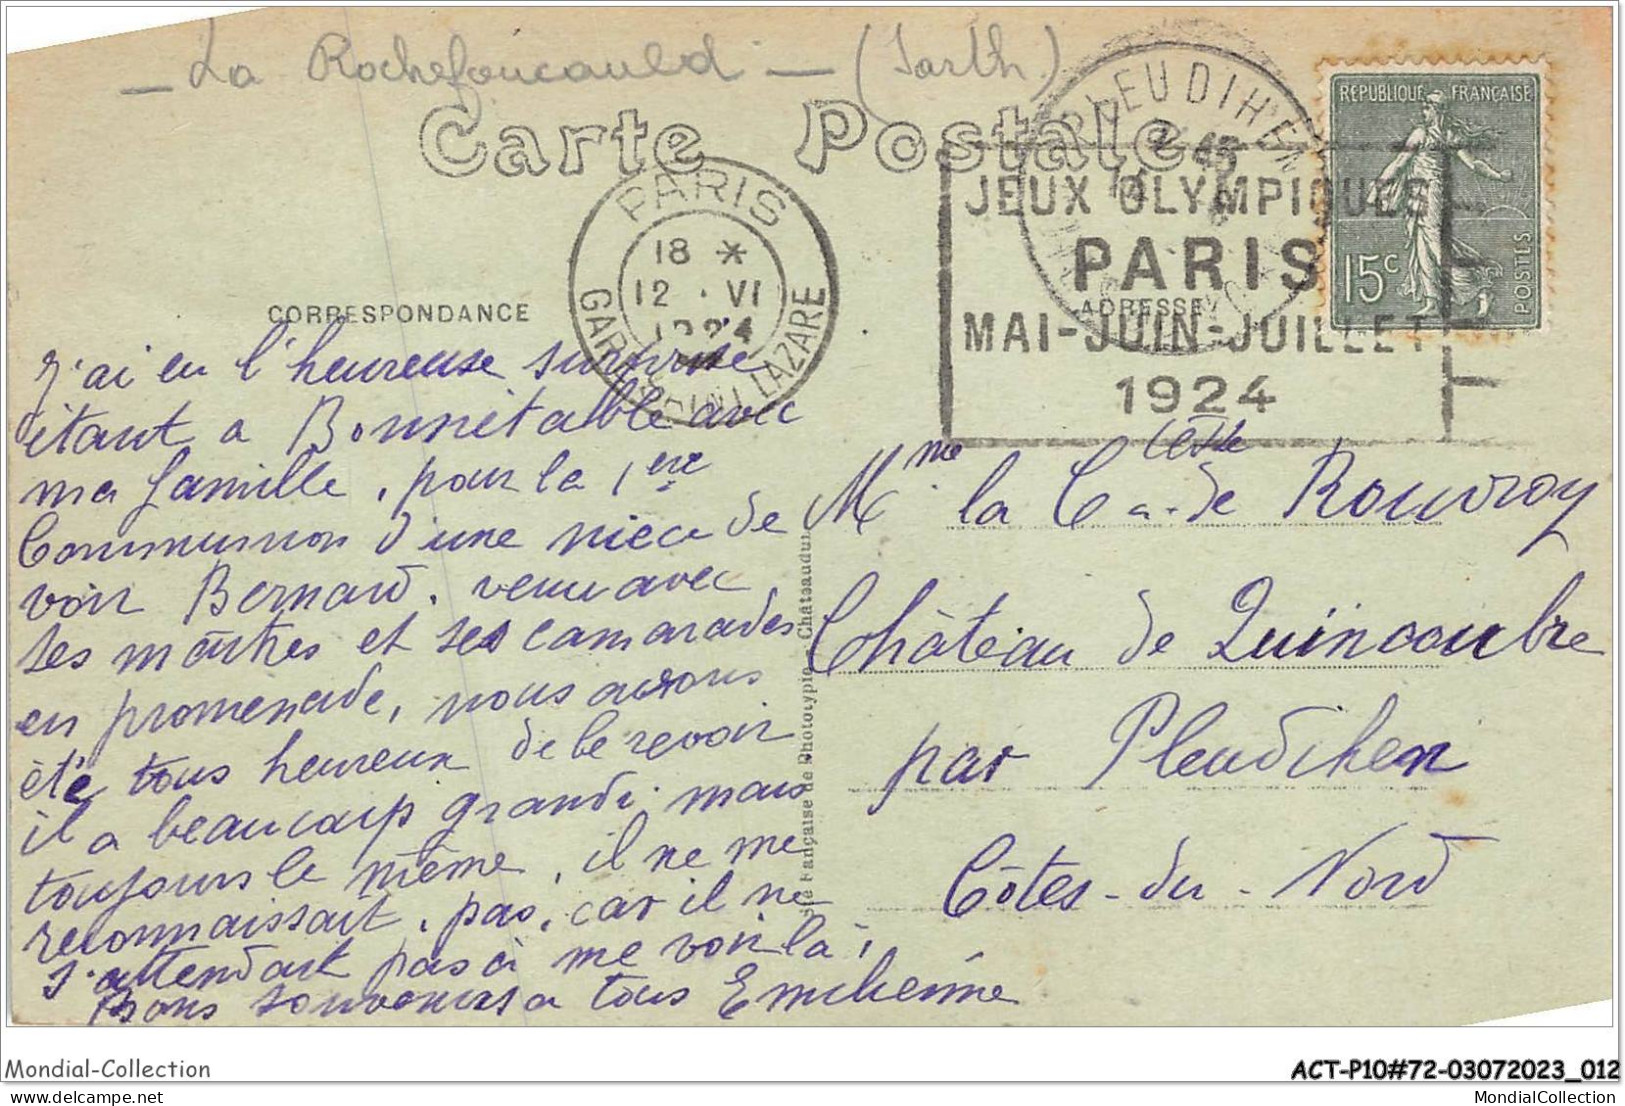 La Rochefoucauld - (Sarth.)
Carte Postale
PARIS
18 *
12 · VI
1924
GARE SAINT LAZARE
PLEUDIHEN
JEUX OLYMPIQUES
PARIS
MAI-JUIN-JUILLET
1924
REPUBLIQUE FRANÇAISE
15c
POSTES
CORRESPONDANCE
ADRESSE
J'ai eu l'heureuse surprise
étant a Bonnétable avec
ma famille, pour la 1ère
Communion d'une niece de
voir Bernard. venu avec
ses maitres et ses camarades
en promenade, nous avons
été tous heureux de le revoir
il a beaucoup grandi. mais
toujours le même, il ne me
reconnaissait. pas, car il ne
s'attendait pas à me voir là,
Bons souvenirs a tous
Mme la Ctesse de Rouvroy
Château de Quincoubre
par Pleudihen
Côtes-du-Nord
Sté Française de Phototypie - Châteaudun
Mondial-Collection
ACT-P10#72-03072023_012
MondialCollection